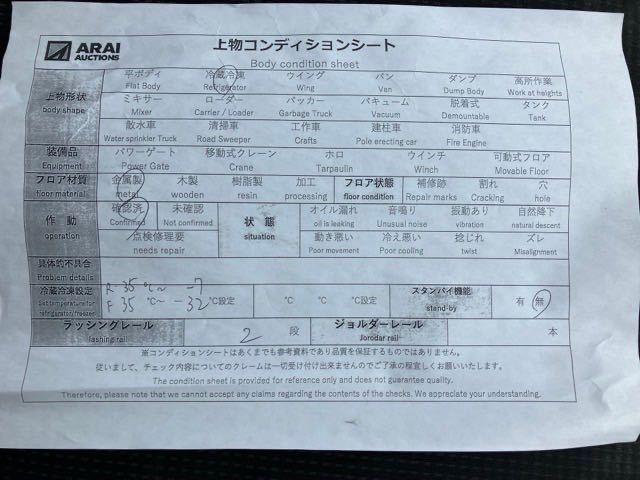 ARAI
AUCTIONS
上物コンディションシート
Body condition sheet
上物形状 平ボディ 冷蔵冷凍 ウイング バン ダンプ 高所作業
body shape Flat Body Refrigerator Wing Van Dump Body Work at heights
ミキサー ローダー パッカー バキューム 脱着式 タンク
Mixer Carrier / Loader Garbage Truck Vacuum Demountable Tank
散水車 清掃車 工作車 建柱車 消防車
Water sprinkler Truck Road Sweeper Crafts Pole erecting car Fire Engine
装備品 パワーゲート 移動式クレーン ホロ ウインチ 可動式フロア
Equipment Power Gate Crane Tarpaulin Winch Movable Floor
フロア材質 金属製 木製 樹脂製 加工 フロア状態 補修跡 割れ 穴
floor material metal wooden resin processing floor condition Repair marks Cracking hole
作動 確認済 未確認 状態 オイル漏れ 音鳴り 振動あり 自然降下
operation Confirmed Not confirmed situation oil is leaking Unusual noise vibration natural descent
点検修理要 動き悪い 冷え悪い 捻じれ ズレ
needs repair Poor movement Poor cooling twist Misalignment
具体的不具合
Problem details
冷蔵冷凍設定 R-35℃~ -7 スタンバイ機能
Set temperature for refrigerator/freezer F 35℃~ -32℃設定 ℃ ℃ ℃設定 stand-by 有 無
ラッシングレール 2 段 ジョルダーレール 本
lashing rail Jorodar rail
※コンディションシートはあくまでも参考資料であり品質を保証するものではありません。
従いまして、チェック内容についてのクレームは一切受け付け出来ませんのでご了承の程宜しくお願いいたします。
The condition sheet is provided for reference only and does not guarantee quality.
Therefore, please note that we cannot accept any claims regarding the contents of the checks. We appreciate your understanding.